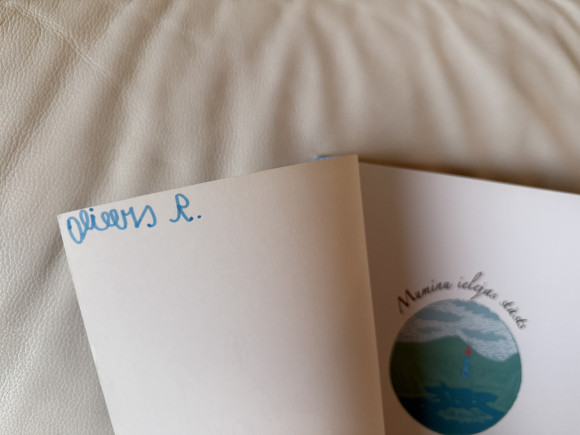 Olivers R.
Muminu ielejas stāsts